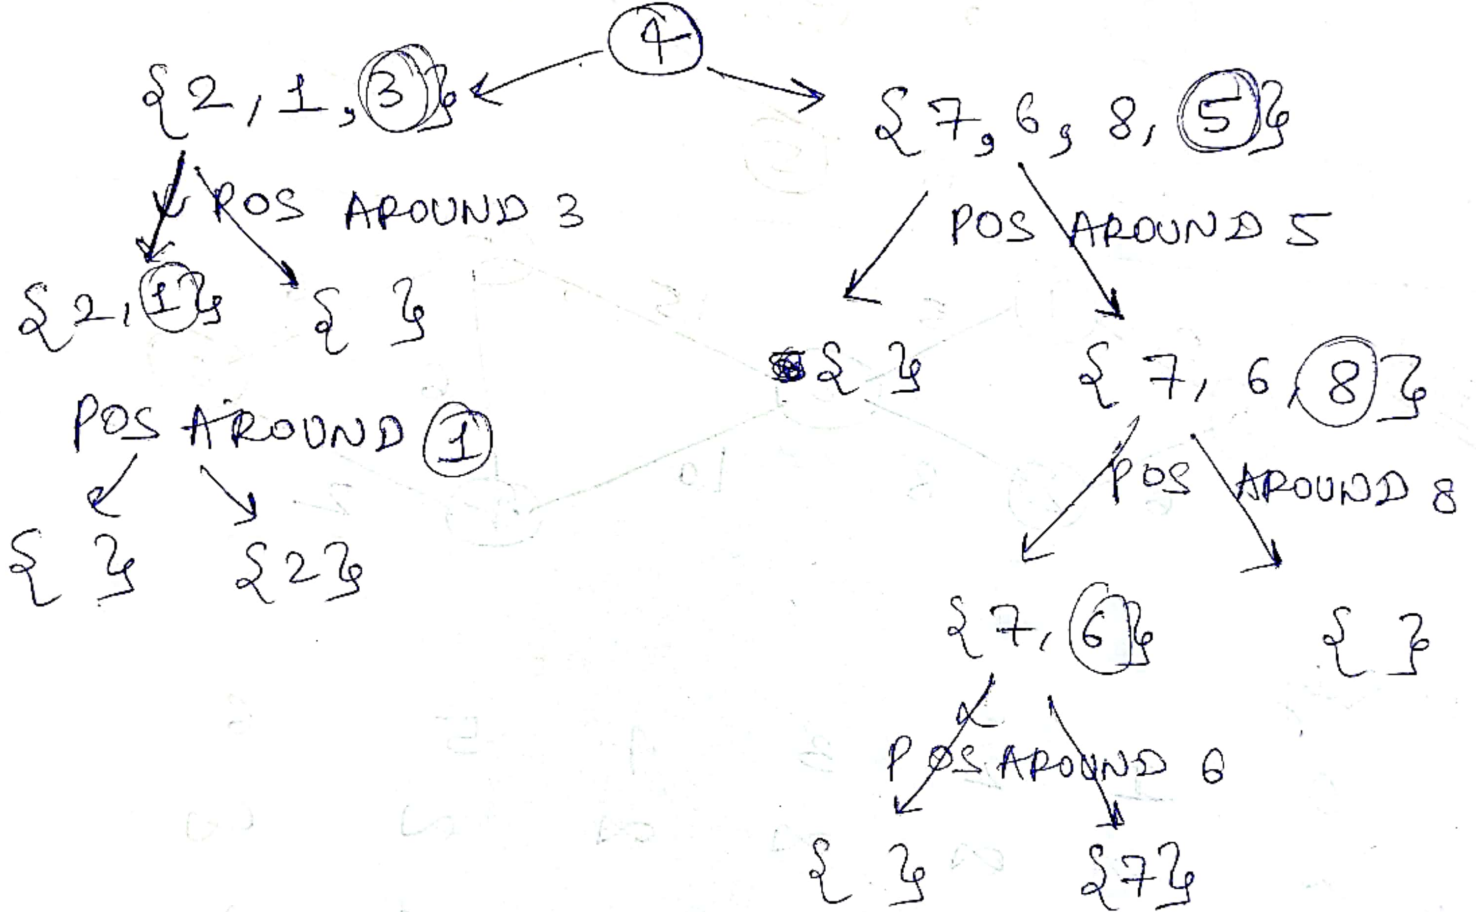 4
{2, 1, 3}
{7, 6, 8, 5}
POS AROUND 3
POS AROUND 5
{2, 1} { }
{ } {7, 6, 8}
POS AROUND 1
POS AROUND 8
{ } {2}
{7, 6} { }
POS AROUND 6
{ } {7}